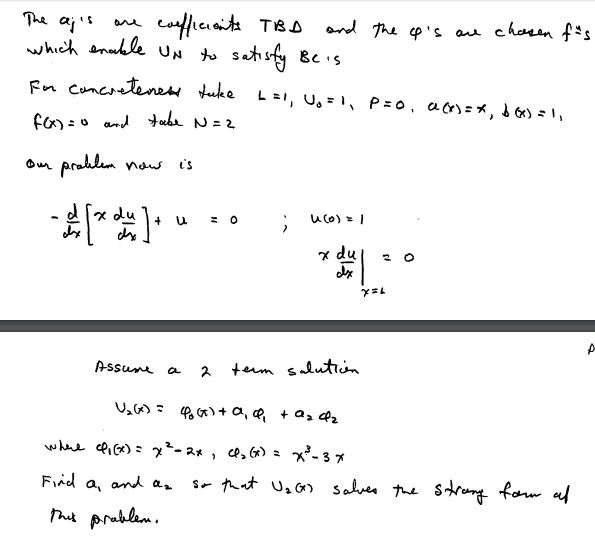 The aj's are coefficients TBD and the φ's are chosen f^ns
which enable UN to satisfy BC's
For concreteness take L=1, U₀=1, P=0, a(x)=x, b(x)=1,
f(x)=0 and take N=2
Our problem now is
- d/dx [x du/dx] + u = 0 ; u(0)=1
x du/dx | x=L = 0
Assume a 2 term solution
U₂(x) = φ₀(x) + a₁φ₁ + a₂φ₂
where φ₁(x) = x²-2x, φ₂(x) = x³-3x
Find a₁ and a₂ so that U₂(x) solves the strong form of
this problem.